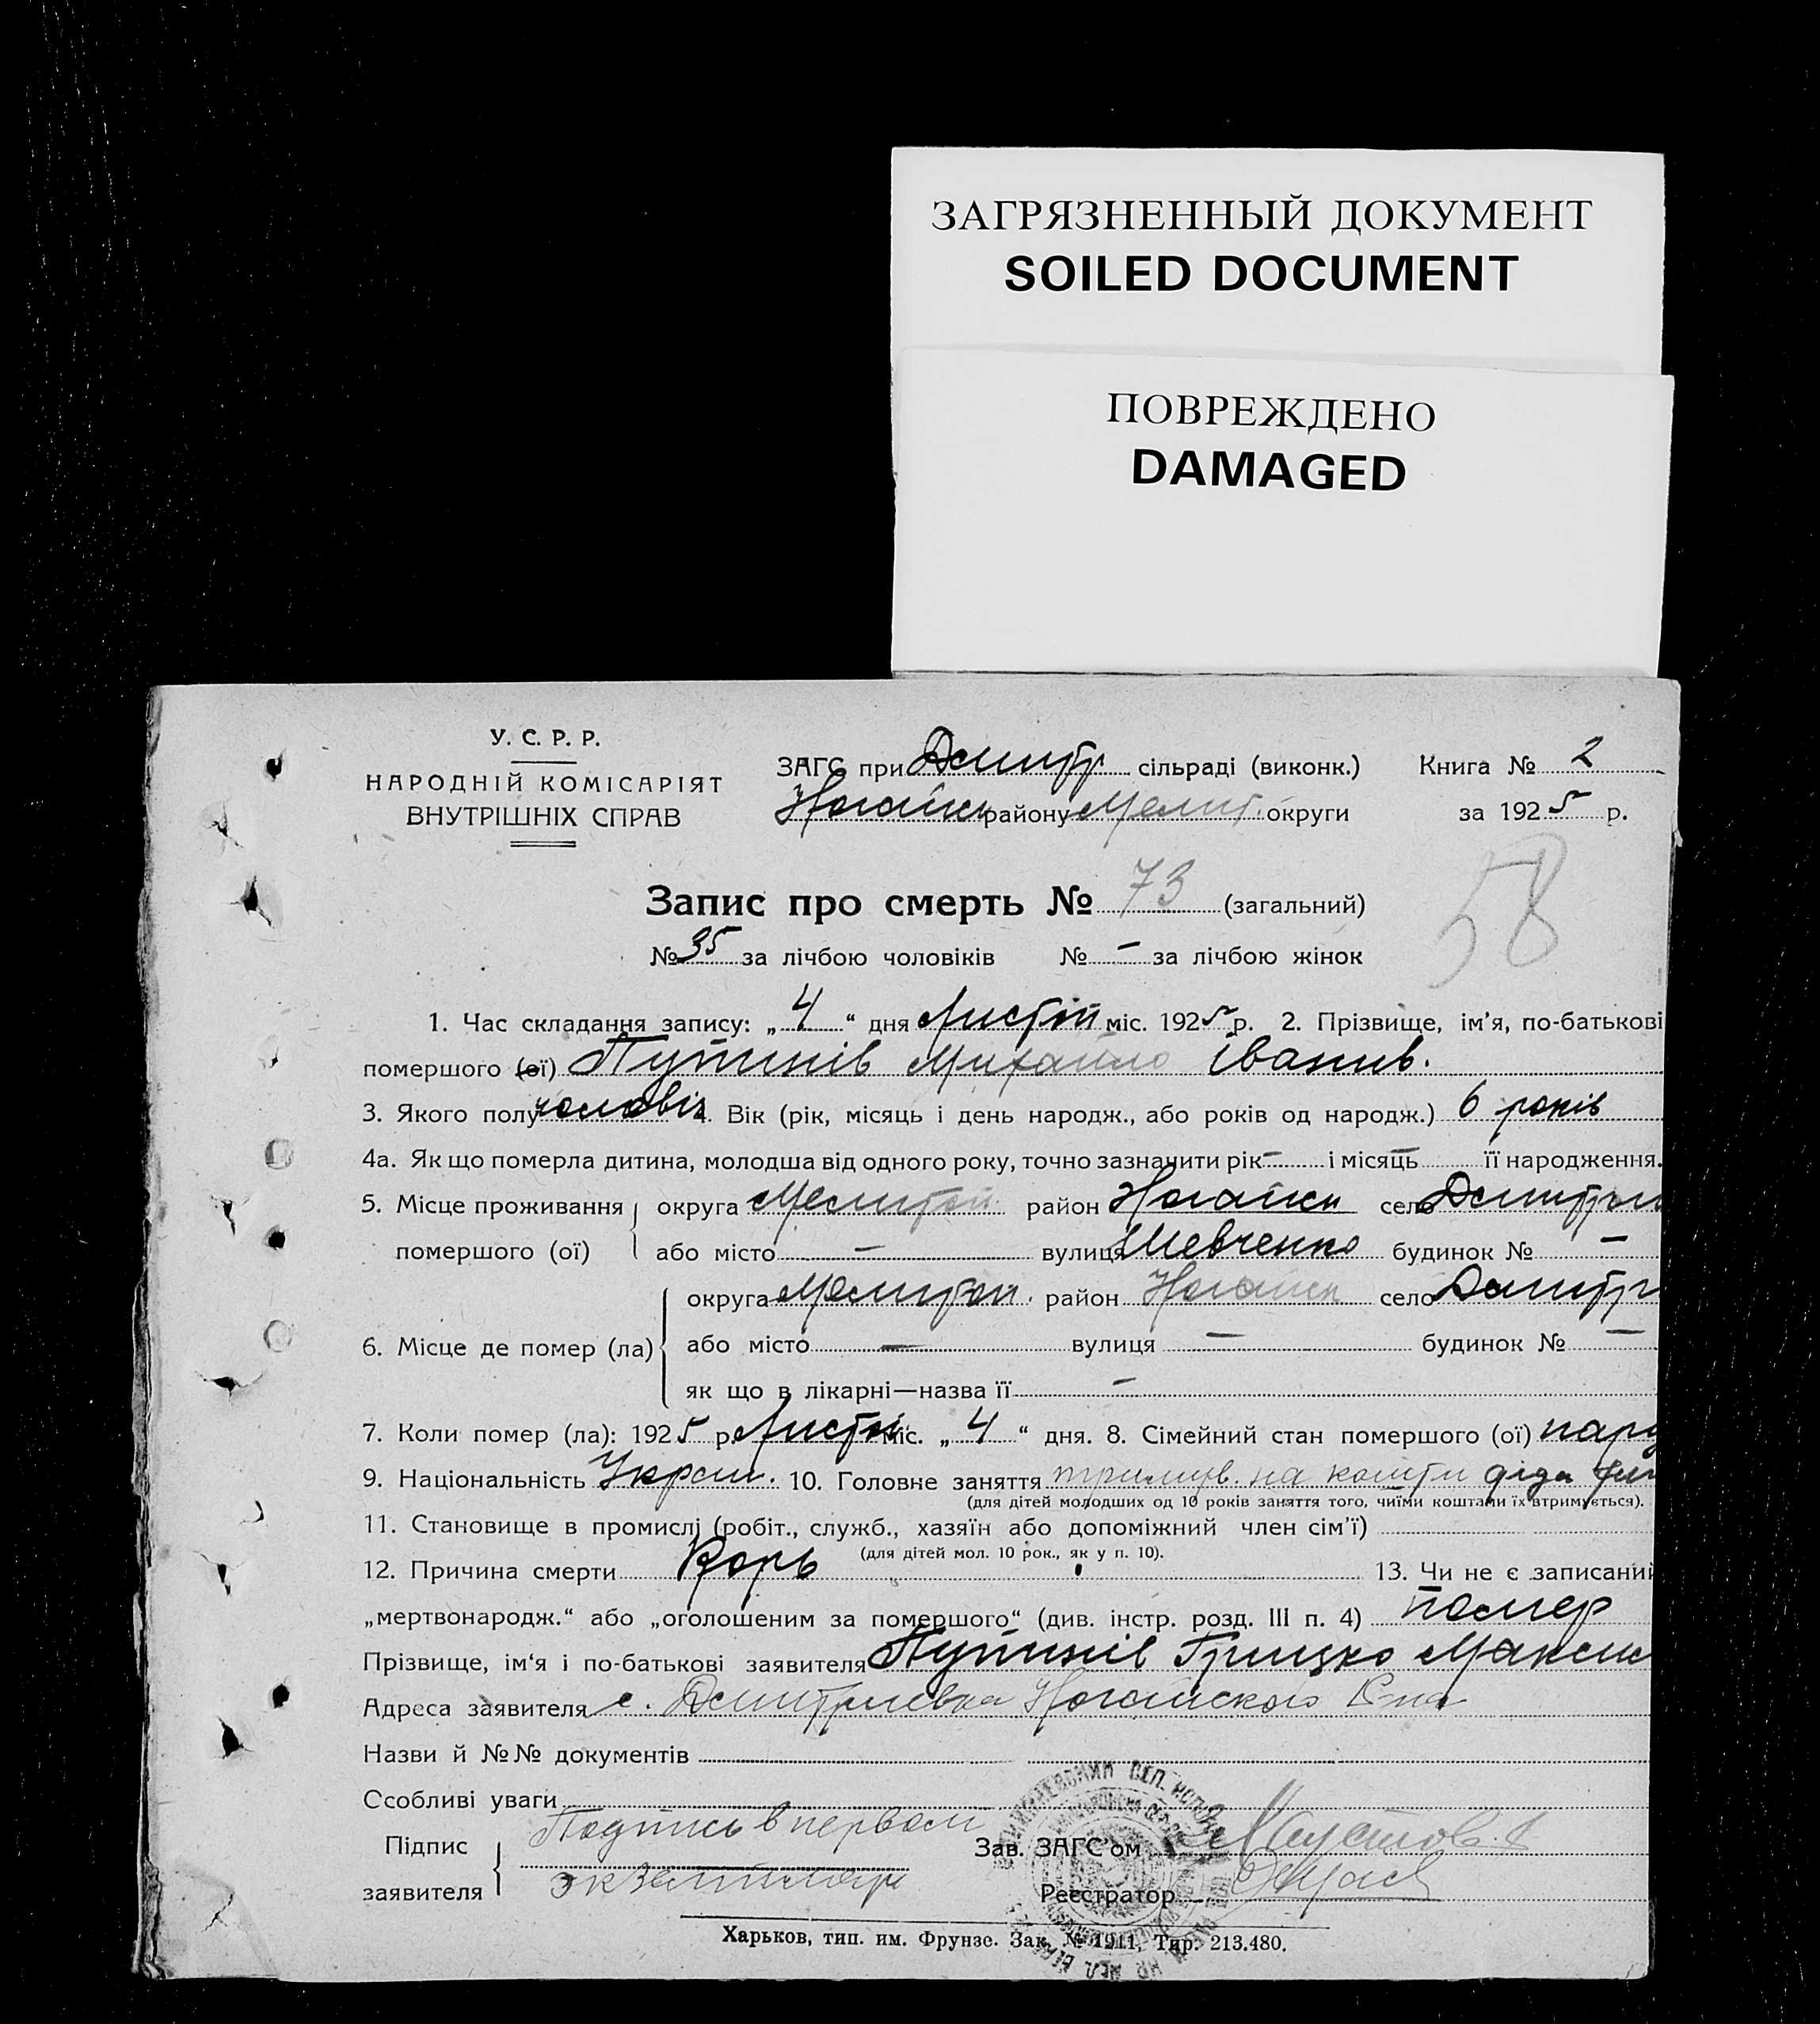 ЗАГРЯЗНЕННЫЙ ДОКУМЕНТ
SOILED DOCUMENT
ПОВРЕЖДЕНО
DAMAGED
У. С. Р. Р.
НАРОДНІЙ КОМІСАРІЯТ
ВНУТРІШНІХ СПРАВ
ЗАГС при Дмитр. сільраді (виконк.) Книга № 2
Ногайск району Мелит. округи за 1925 р.
58
Запис про смерть № 73 (загальний)
№ 35 за лічбою чоловіків № — за лічбою жінок
1. Час складання запису: „4“ дня Листоп міс. 1925 р. 2. Прізвище, ім’я, по-батькові
помершого (ої) Михайло Іванив.
3. Якого полу чоловік 4. Вік (рік, місяць і день народж., або років од народж.) 6 років
4а. Як що померла дитина, молодша від одного року, точно зазначити рік — і місяць — її народження.
5. Місце проживання округа Мелитоп район Ногайск село Дмитрів
помершого (ої) або місто — вулиця Шевченко будинок № —
округа Мелитоп. район Ногайск село Дмитр
6. Місце де помер (ла) або місто — вулиця — будинок № —
як що в лікарні—назва її —
7. Коли помер (ла): 1925 р. Листоп міс. „4“ дня. 8. Сімейний стан помершого (ої)
9. Національність Украи. 10. Головне заняття на кошти діда
(для дітей молодших од 10 років заняття того, чиїми коштами їх втримується).
11. Становище в промислі (робіт., служб., хазяїн або допоміжний член сім’ї)
(для дітей мол. 10 рок., як у п. 10).
12. Причина смерти Корь 13. Чи не є записаний
„мертвонародж.“ або „оголошеним за помершого“ (див. інстр. розд. III п. 4) помер
Прізвище, ім’я і по-батькові заявителя Грицко Максим
Адреса заявителя с. Дмитриевка Ногайского Р-на
Назви й №№ документів
Особливі уваги
Підпис Подпись в первом Зав. ЗАГС’ом
заявителя экземпляре Реєстратор
Харьков, тип. им. Фрунзе. Зак. № 1911, Тир. 213.480.